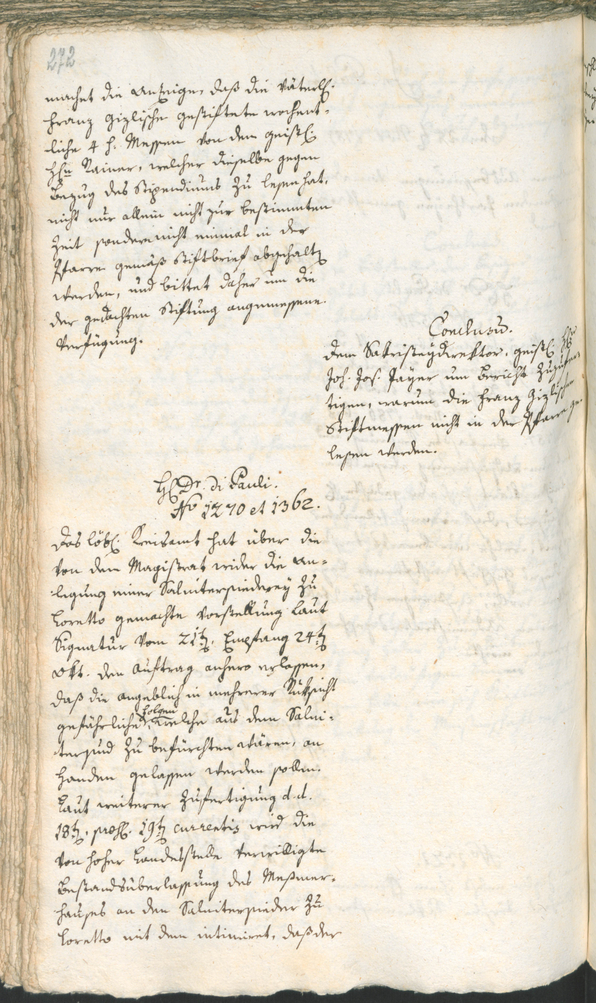 272
machet die Anzeige, daß die väterl.
Franz Gizlische gestiftete wochent-
liche 4 h. Messen von dem geistl.
Hrn Rainer, welcher dieselbe gegen
Bezug des Stipendiums zu lesen hat,
nicht nur allein nicht zur bestimmten
Zeit sondern nicht einmal in der
Pfarre gemäß Stiftbrief abgehalten
werden, und bittet daher um die
der gedachten Stiftung angemessene
Verfügung.
Conclusum.
Dem Sakristeydirektor, geistl.
Joh. Jos. Payer um Bericht zuzufer-
tigen, warum die Franz Gizlische
Stiftmessen nicht in der Pfarre ge-
lesen werden.
H. Dr. di Pauli.
No 1270 et 1362.
Das löbl. Kreisamt hat über die
von dem Magistrat wider die An-
legung einer Salnitersiederey zu
Loretto gemachte Vorstellung laut
Signatur vom 21ten, Empfang 24ten
Okt. den Auftrag anhero erlassen,
daß die angeblich in mehrerer Rücksicht
gefährliche Folgen, welche aus dem Salni-
tersud zu befürchten wären, an
Handen gelassen werden sollen.
Laut weiterer Zufertigung d.d.
18ten, praes. 19ten currentis wird die
von hoher Landesstelle verwilligte
Bestandsüberlassung des Meßmer-
hauses an den Salnitersieder zu
Loretto mit dem intimiret, daß der